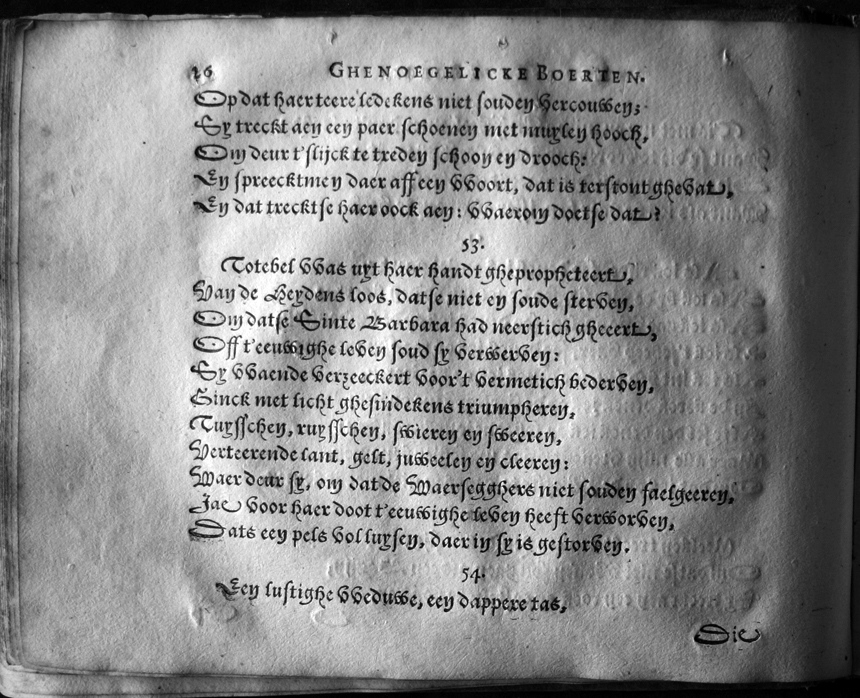 26 GHENOEGELICKE BOERTEN.
Op dat haer teere ledekens niet souden vercouwen;
Sy treckt aen een paer schoenen met muylen hooch,
Om deur t'slijck te treden schoon en drooch:
En spreecktmen daer aff een VVoort, dat is terstont ghevat,
En dat trecktse haer oock aen: VVaerom doetse dat?
53.
Totebel VVas uyt haer handt ghepropheteert,
Van de Heydens loos, datse niet en soude sterven,
Om datse Sinte Barbara had neerstich gheeert,
Off t'eeuwighe leven soud sy verwerven:
Sy VVaende verzeeckert voor't vermetich bederven,
Ginck met licht ghesindekens triumpheren,
Tuysschen, ruysschen, swieren en sweeren,
Verteerende lant, gelt, juweelen en cleeren:
Waer deur sy, om dat de Waersegghers niet souden faelgeeren,
Jae voor haer doot t'eeuwighe leven heeft verworven,
Dats een pels vol luysen, daer in sy is gestorven.
54.
Een lustighe VVeduwe, een dappere tas,
Die